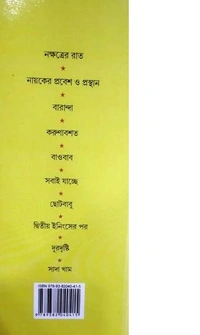 নক্ষত্রের রাত
★
নায়কের প্রবেশ ও প্রস্থান
★
বারান্দা
★
করুণাবশত
★
বাওবাব
★
সবাই যাচ্ছে
★
ছোটবাবু
★
দ্বিতীয় ইনিংসের পর
★
দূরদৃষ্টি
★
সাদা খাম
ISBN 978-93-82040-41-5
9789382040415